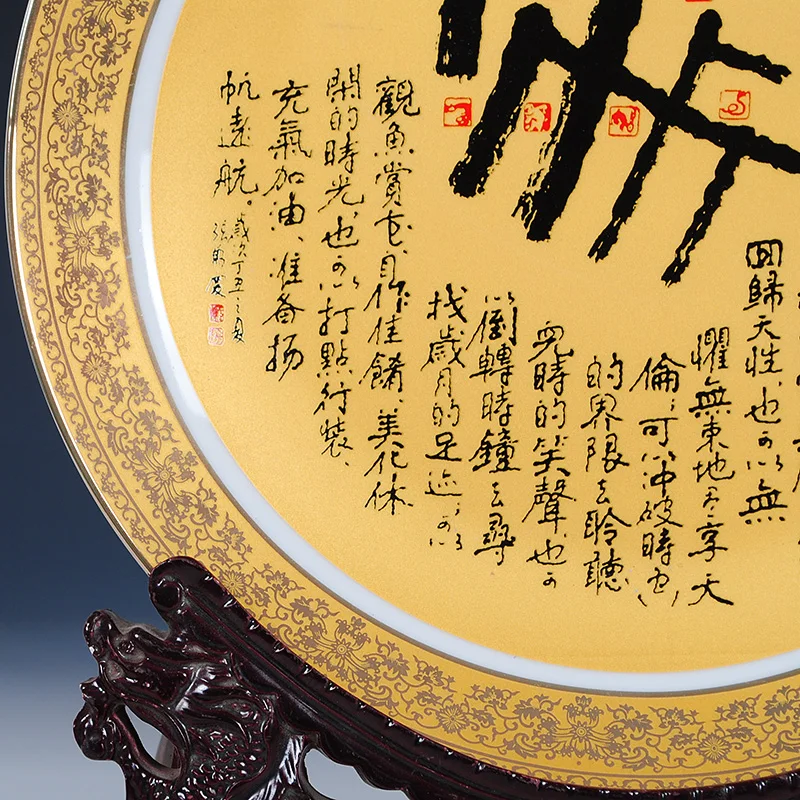 回歸天性，也可以無
懼無束地盡享天
倫；可以沖破時空
的界限去聆聽
兒時的笑聲，也可
以倒轉時鐘去尋
找歲月的足迹；可以
觀魚賞花、自作佳餚、美化休
閑的時光，也可以打點行裝、
充氣加油、准备扬
帆遠航。
歲次丁丑之夏